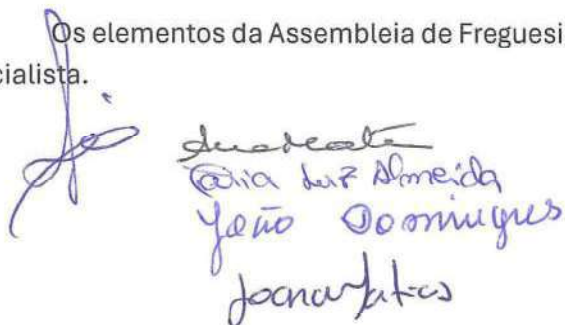 Os elementos da Assembleia de Freguesi
cialista.
Luz Almeida
João Domingues
Joana